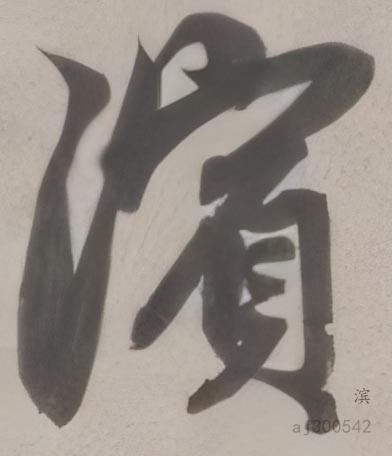 濱
滨
aj300542